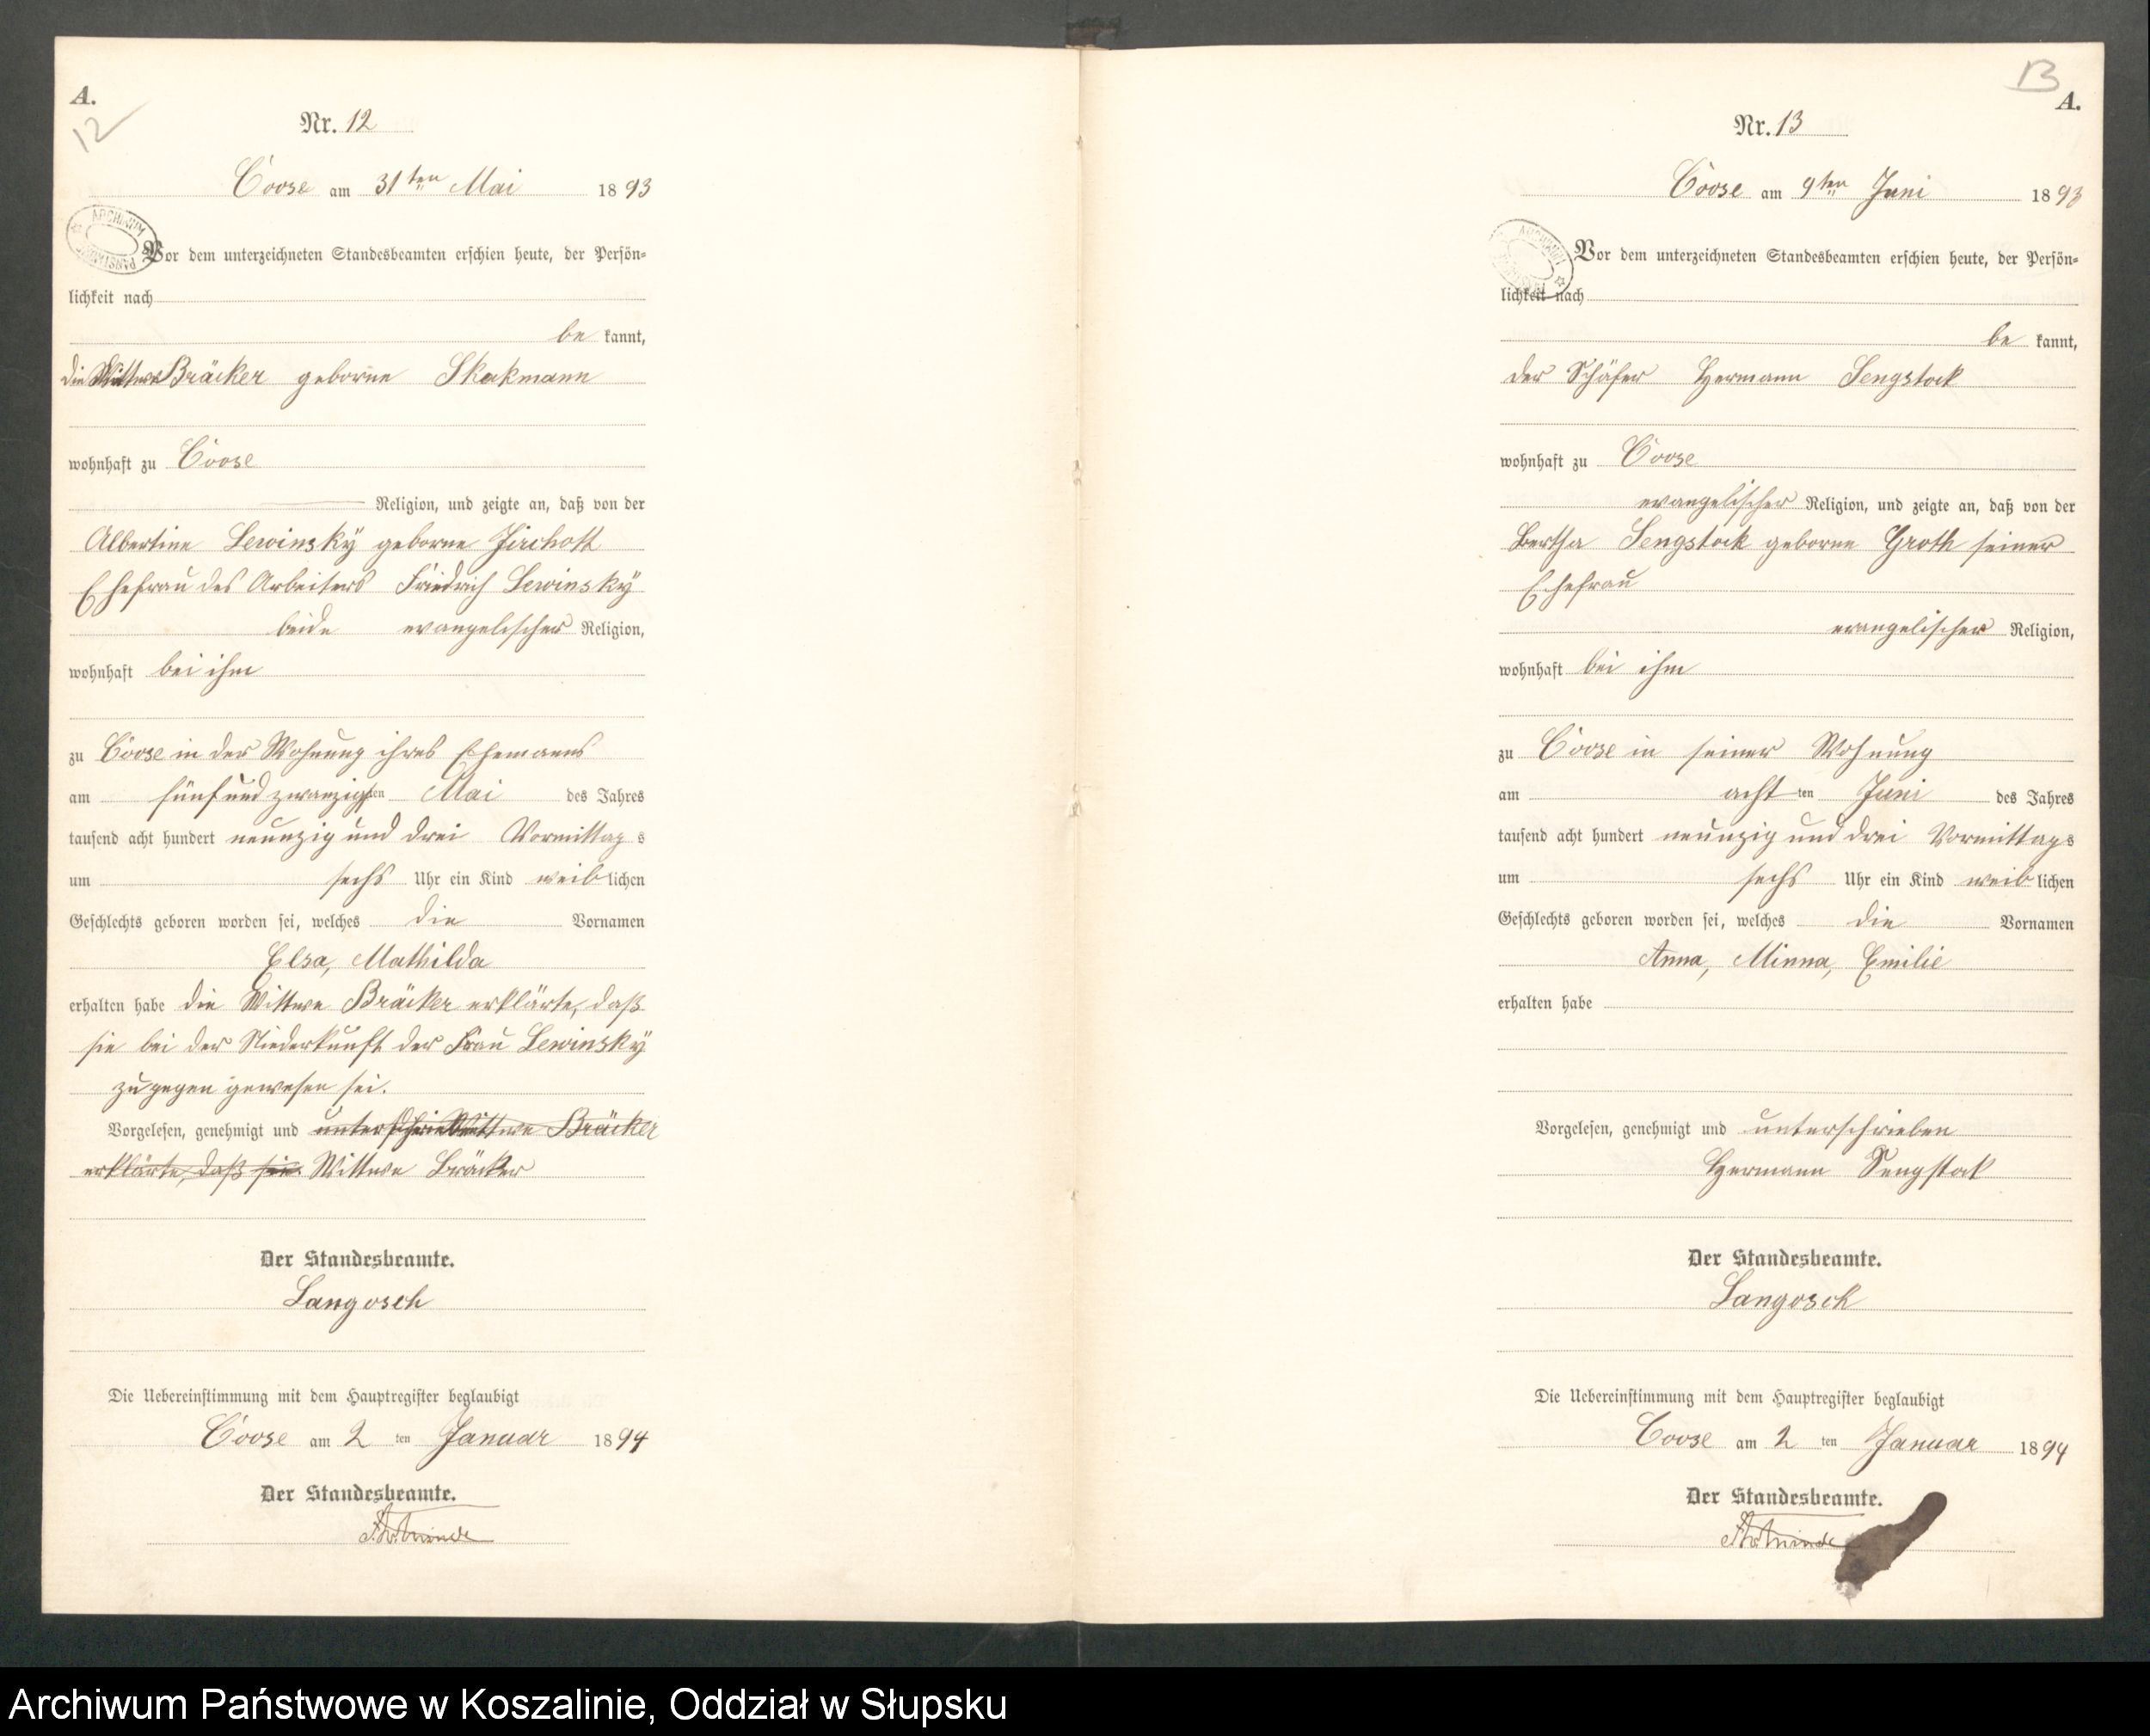 A.
12
Nr. 12
Coose am 31ten Mai 1893
ARCHIWUM PAŃSTWOWE
Vor dem unterzeichneten Standesbeamten erschien heute, der Persön-
lichkeit nach
be kannt,
die Wittwe Bräcker geborne Skakmann
wohnhaft zu Coose
Religion, und zeigte an, daß von der
Albertine Lewinsky geborne
Ehefrau des Arbeiters Friedrich Lewinsky
beide evangelischer Religion,
wohnhaft bei ihm
zu Coose in der Wohnung ihres Ehemanns
am fünf und zwanzigsten Mai des Jahres
tausend acht hundert neunzig und drei Vormittags
um sechs Uhr ein Kind weiblichen
Geschlechts geboren worden sei, welches die Vornamen
Elsa, Mathilda
erhalten habe die Wittwe Bräcker erklärte, daß
sie bei der Niederkunft der Frau Lewinsky
zugegen gewesen sei.
Vorgelesen, genehmigt und Wittwe Bräcker
erklärte, daß sie Wittwe Bräcker
Der Standesbeamte.
Langosch
Die Uebereinstimmung mit dem Hauptregister beglaubigt
Coose am 2 ten Januar 1894
Der Standesbeamte.
13
A.
Nr. 13
Coose am 9ten Juni 1893
Vor dem unterzeichneten Standesbeamten erschien heute, der Persön-
lichkeit nach
be kannt,
der Schäfer Hermann Sengstock
wohnhaft zu Coose
evangelischer Religion, und zeigte an, daß von der
Bertha Sengstock geborne Groth seiner
Ehefrau
evangelischer Religion,
wohnhaft bei ihm
zu Coose in seiner Wohnung
am acht ten Juni des Jahres
tausend acht hundert neunzig und drei Vormittags
um sechs Uhr ein Kind weiblichen
Geschlechts geboren worden sei, welches die Vornamen
Anna, Minna, Emilie
erhalten habe
Vorgelesen, genehmigt und unterschrieben
Hermann Sengstock
Der Standesbeamte.
Langosch
Die Uebereinstimmung mit dem Hauptregister beglaubigt
Coose am 2 ten Januar 1894
Der Standesbeamte.
Archiwum Państwowe w Koszalinie, Oddział w Słupsku